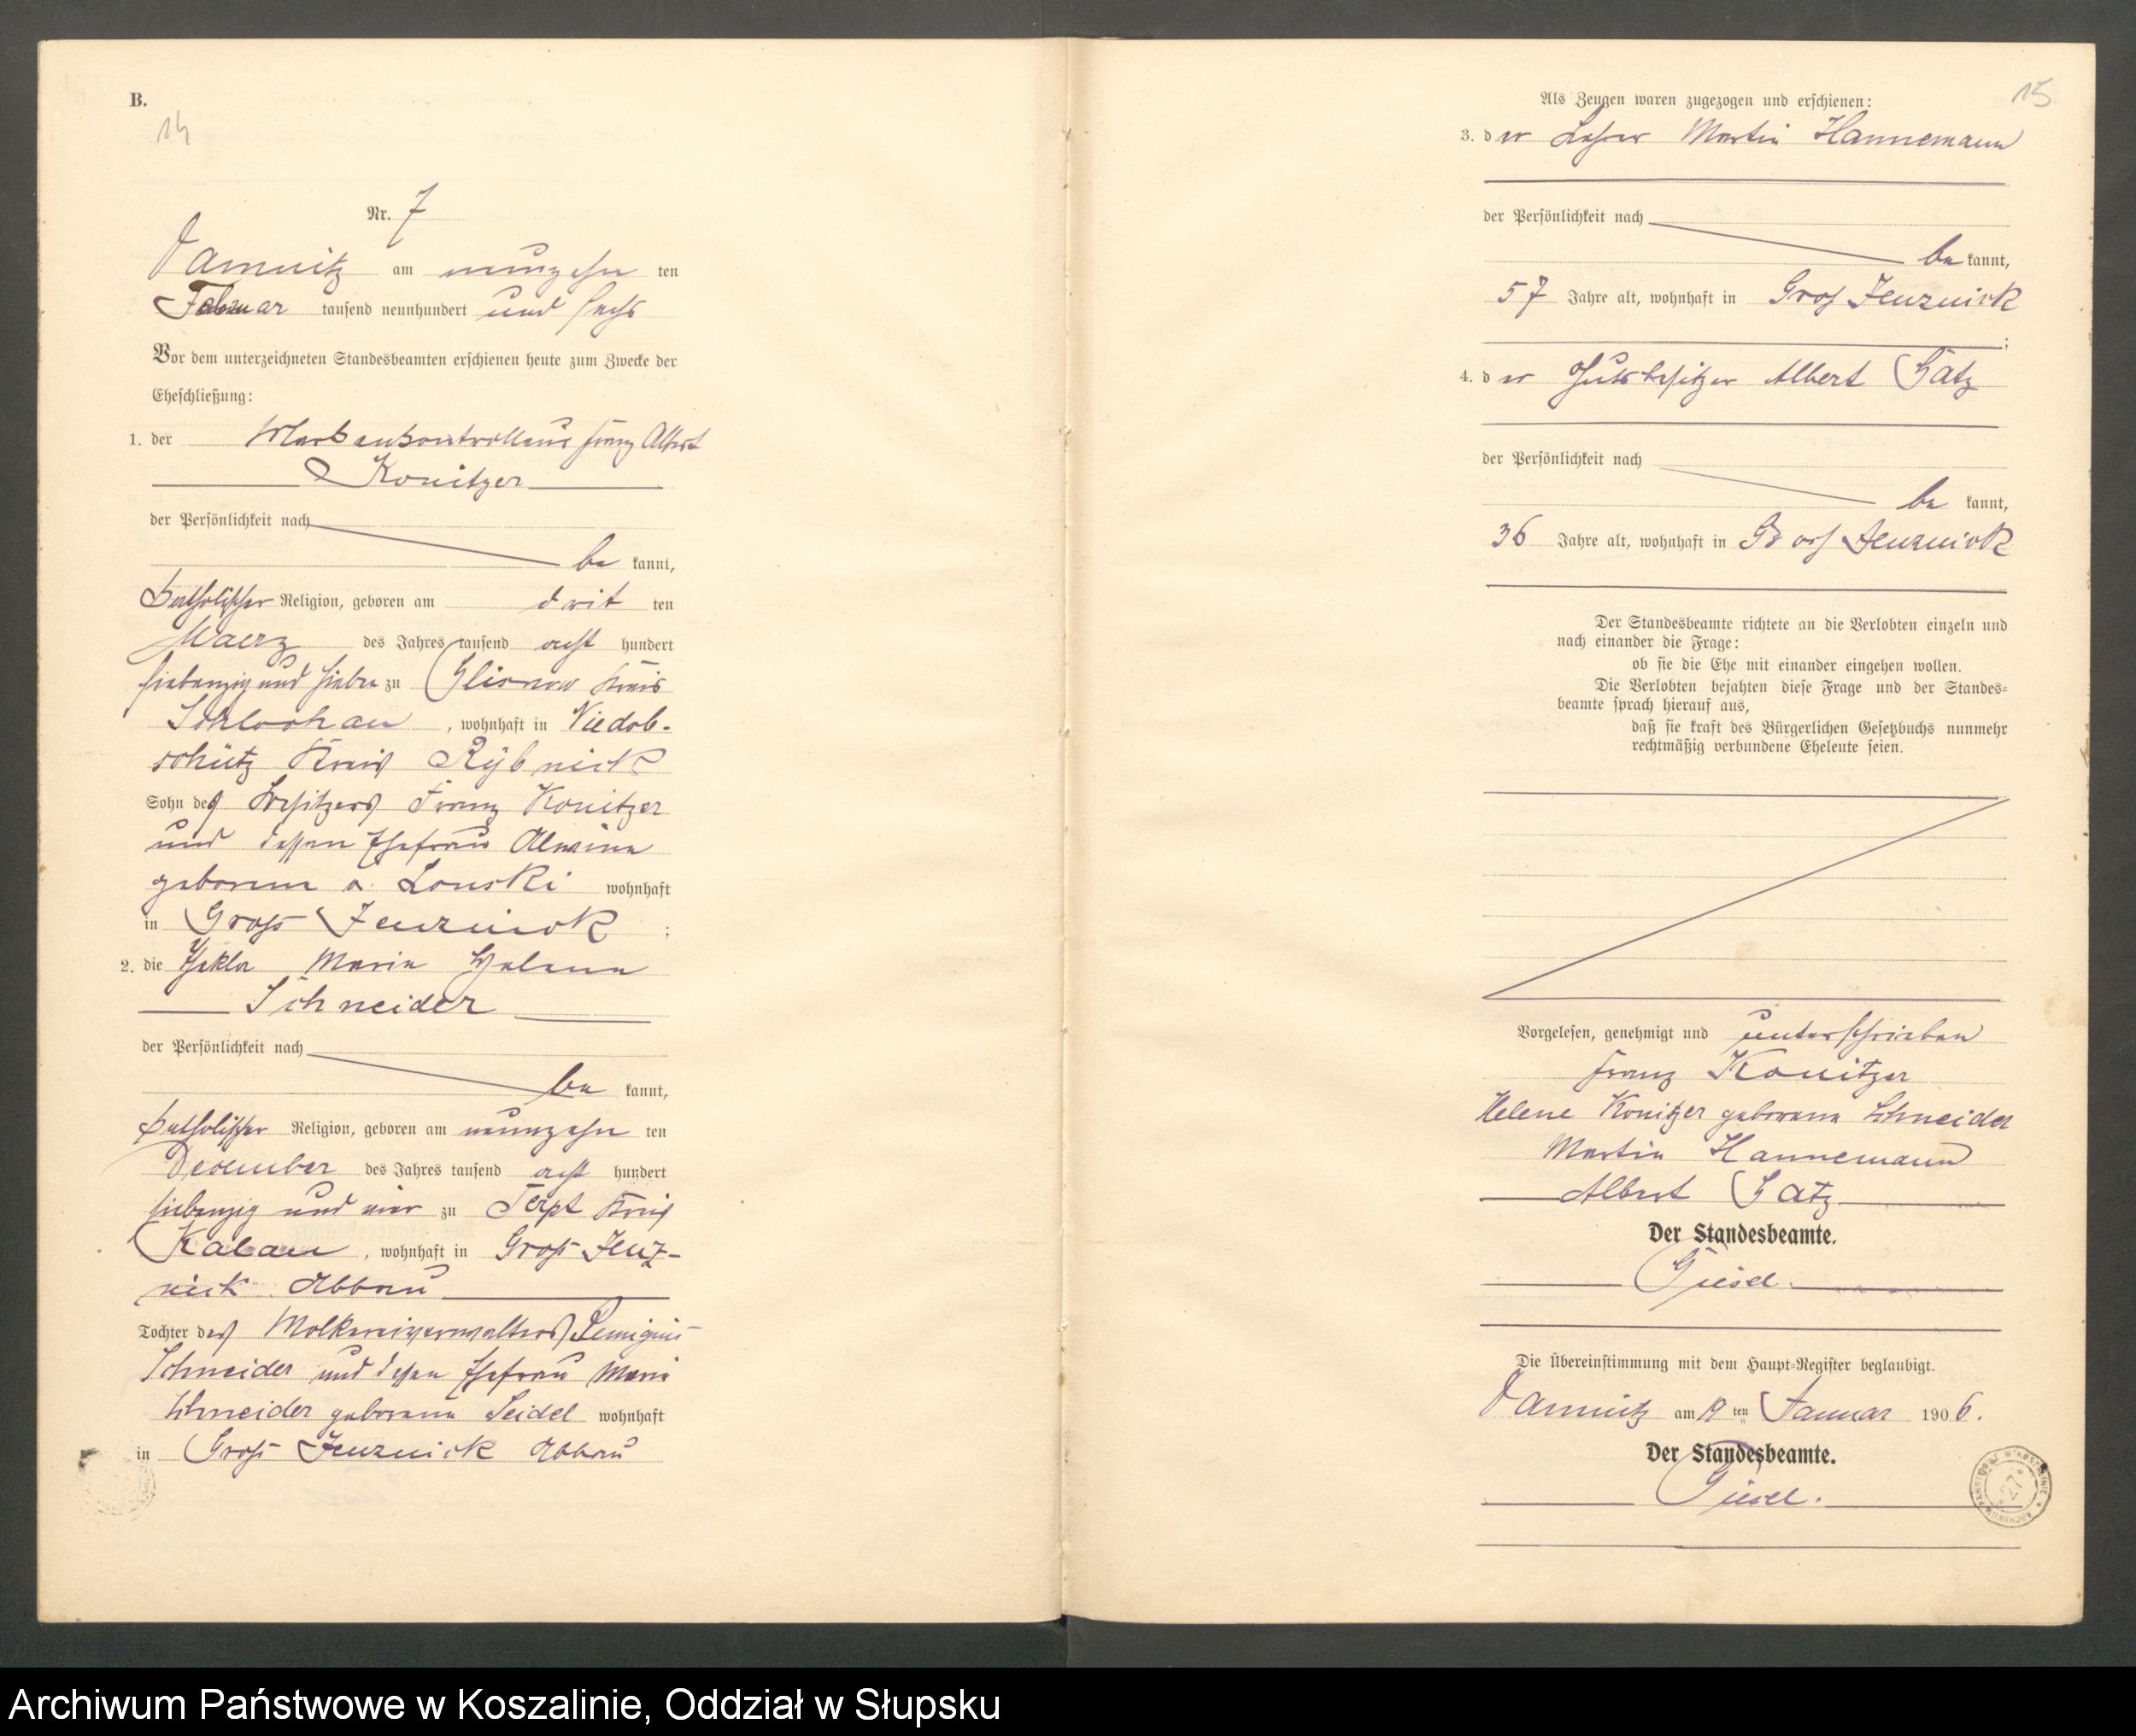 B.
14
Nr. 7
Damnitz am neunzehn ten
Februar tausend neunhundert und sechs
Vor dem unterzeichneten Standesbeamten erschienen heute zum Zwecke der
Eheschließung:
1. der Markenkontrolleur Franz Albert
Konitzer
der Persönlichkeit nach
be kannt,
katholischer Religion, geboren am dritt ten
Maerz des Jahres tausend acht hundert
siebenzig und sieben zu Glisnow Kreis
Schlochau, wohnhaft in Niedob-
schütz Kreis Rybnick
Sohn des Besitzers Franz Konitzer
und dessen Ehefrau Alwine
geborene v. Lonski wohnhaft
in Gross Jenznick;
2. die Maria Helena
Schneider
der Persönlichkeit nach
be kannt,
katholischer Religion, geboren am neunzehn ten
December des Jahres tausend acht hundert
siebenzig und vier zu Terpt Kreis
Kalau, wohnhaft in Gross Jenz-
nick Abbau
Tochter des Molkereiverwalters Remigius
Schneider und dessen Ehefrau Maria
Schneider geborene Seidel wohnhaft
in Gross Jenznick Abbau
15
Als Zeugen waren zugezogen und erschienen:
3. der Lehrer Martin Hannemann
der Persönlichkeit nach
be kannt,
57 Jahre alt, wohnhaft in Gross Jenznick
;
4. der Gutsbesitzer Albert Gatz
der Persönlichkeit nach
be kannt,
36 Jahre alt, wohnhaft in Gross Jenznick
Der Standesbeamte richtete an die Verlobten einzeln und
nach einander die Frage:
ob sie die Ehe mit einander eingehen wollen.
Die Verlobten bejahten diese Frage und der Standes-
beamte sprach hierauf aus,
daß sie kraft des Bürgerlichen Gesetzbuchs nunmehr
rechtmäßig verbundene Eheleute seien.
Vorgelesen, genehmigt und unterschrieben
Franz Konitzer
Helene Konitzer geborene Schneider
Martin Hannemann
Albert Gatz
Der Standesbeamte.
Giesel.
Die Übereinstimmung mit dem Haupt-Register beglaubigt.
Damnitz am 19 ten Januar 1906.
Der Standesbeamte.
Giesel.
ARCHIWUM PAŃSTWOWE W KOSZALINIE
27
Archiwum Państwowe w Koszalinie, Oddział w Słupsku